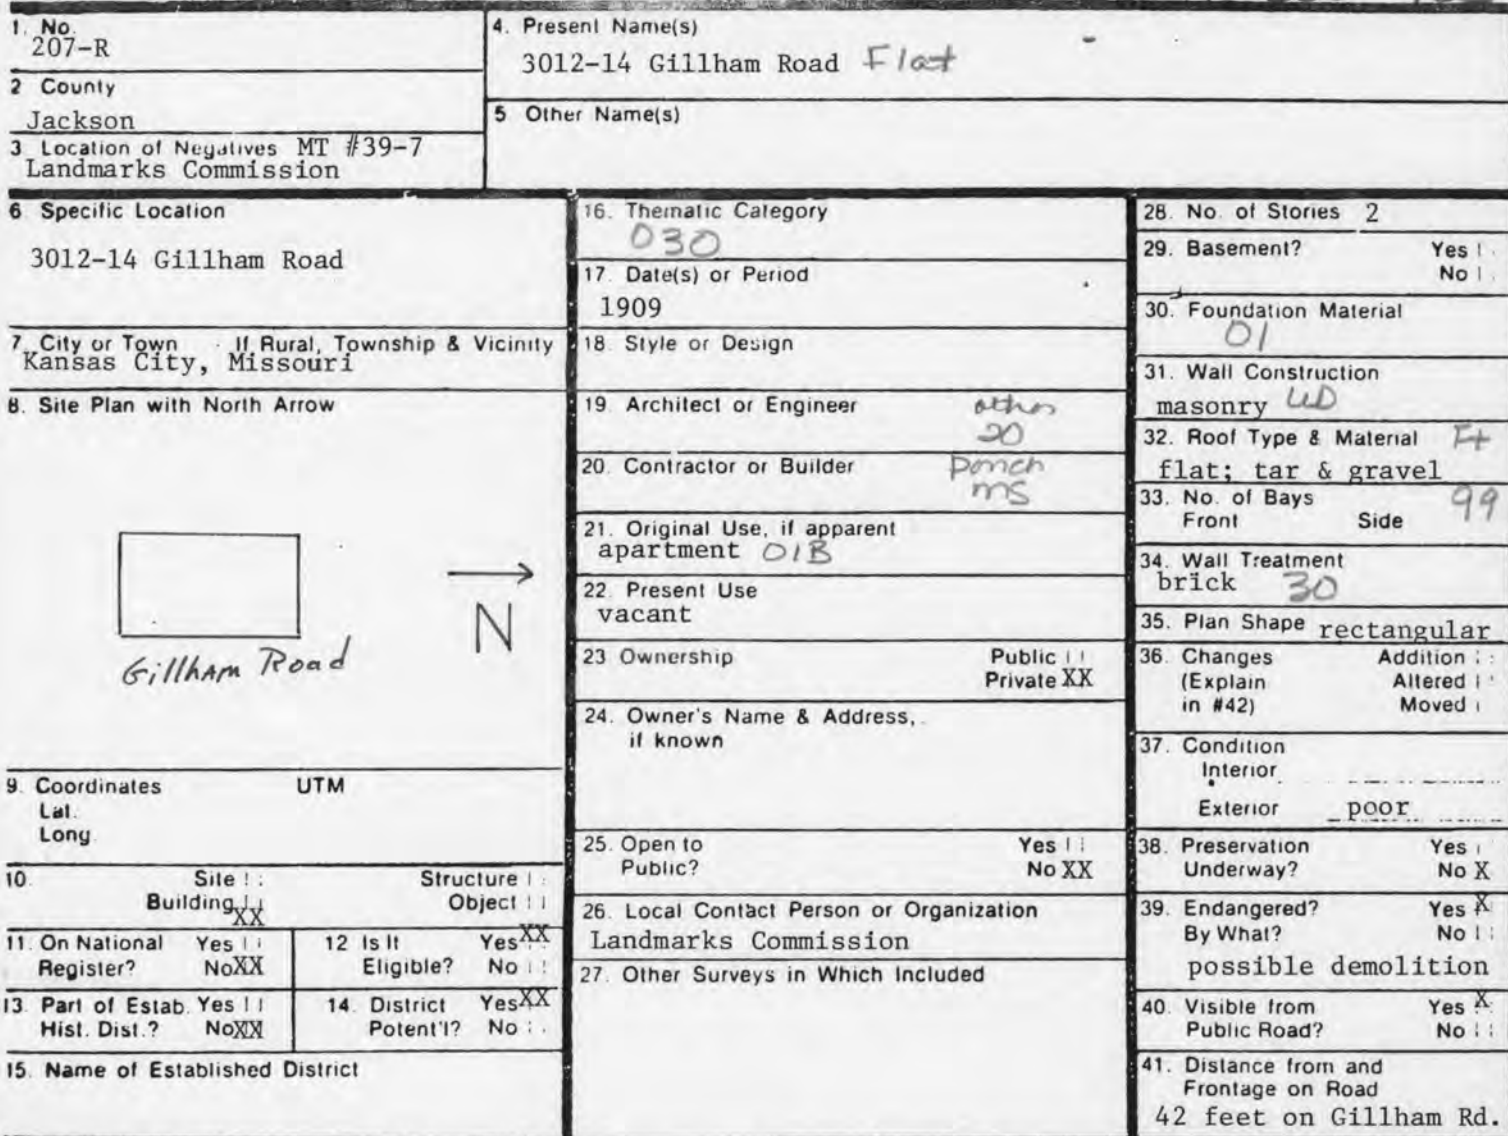 1. No.
207-R
2 County
Jackson
3 Location of Negatives MT #39-7
Landmarks Commission
4. Present Name(s)
3012-14 Gillham Road Flat
5 Other Name(s)
6 Specific Location
3012-14 Gillham Road
7 City or Town If Rural, Township & Vicinity
Kansas City, Missouri
8. Site Plan with North Arrow
N
Gillham Road
9. Coordinates UTM
Lat.
Long.
10. Site Structure
Building XX Object
11. On National Yes
Register? No XX
12 Is It Yes XX
Eligible? No
13. Part of Estab. Yes
Hist. Dist.? No XX
14. District Yes XX
Potent'l? No
15. Name of Established District
16. Thematic Category
030
17. Date(s) or Period
1909
18. Style or Design
19. Architect or Engineer other
20
20. Contractor or Builder
ms
21. Original Use, if apparent
apartment 01B
22. Present Use
vacant
23 Ownership Public
Private XX
24. Owner's Name & Address,
if known
25. Open to Yes
Public? No XX
26. Local Contact Person or Organization
Landmarks Commission
27. Other Surveys in Which Included
28. No. of Stories 2
29. Basement? Yes
No
30. Foundation Material
01
31. Wall Construction
masonry UD
32. Roof Type & Material Ft
flat; tar & gravel
33. No. of Bays 99
Front Side
34. Wall Treatment
brick 30
35. Plan Shape rectangular
36. Changes Addition
(Explain Altered
in #42) Moved
37. Condition
Interior
Exterior poor
38. Preservation Yes
Underway? No X
39. Endangered? Yes X
By What? No
possible demolition
40. Visible from Yes X
Public Road? No
41. Distance from and
Frontage on Road
42 feet on Gillham Rd.